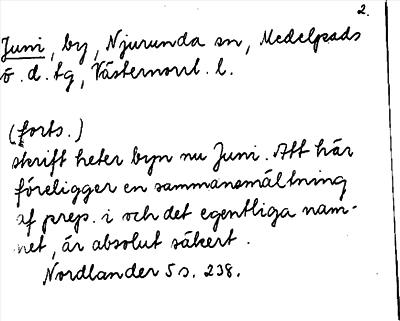 2.
Juni, by, Njurunda sn, Medelpads
ö. d. tg, Västernorrl. l.
(forts.)
skrift heter byn nu Juni. Att här
föreligger en sammansmältning
af prep. i och det egentliga nam-
net, är absolut säkert.
Nordlander 5 s. 238.